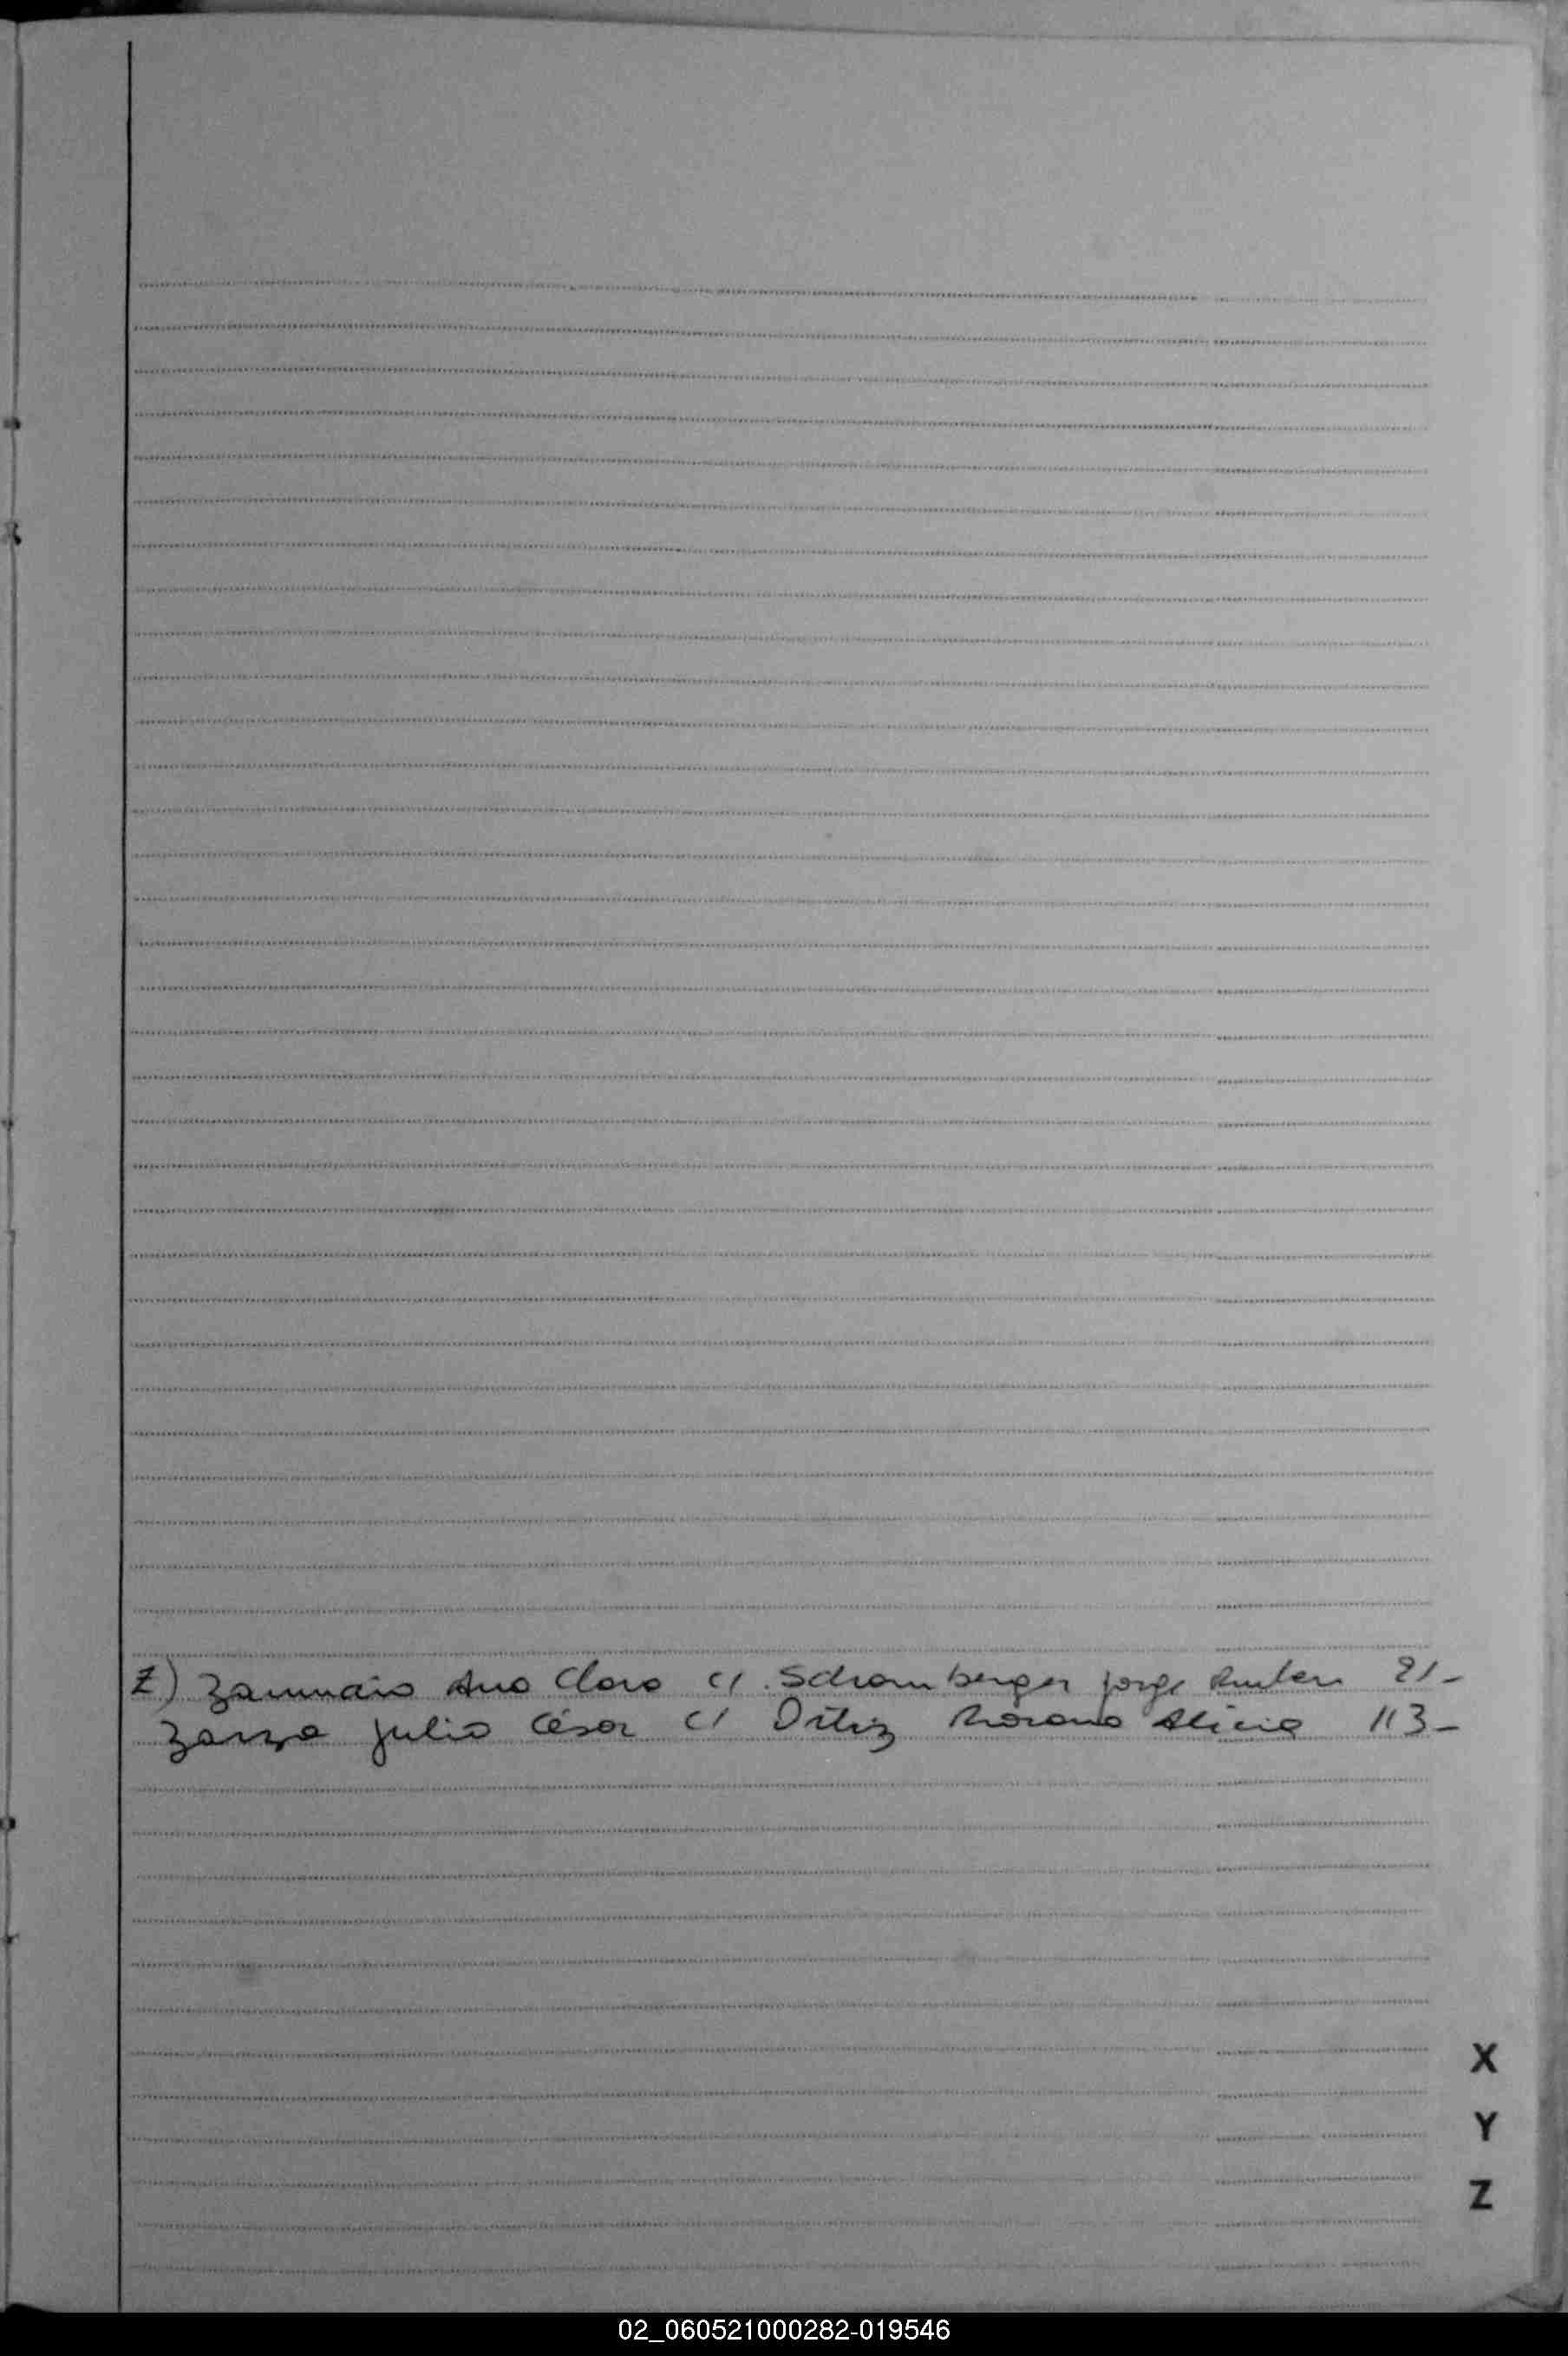 Z) Zamunaro Ana Clara c/. Schramberger Jorge Ruben 21-
Zarza Julio César c/ Ortiz Morano Alicia 113-
X
Y
Z
02_060521000282-019546